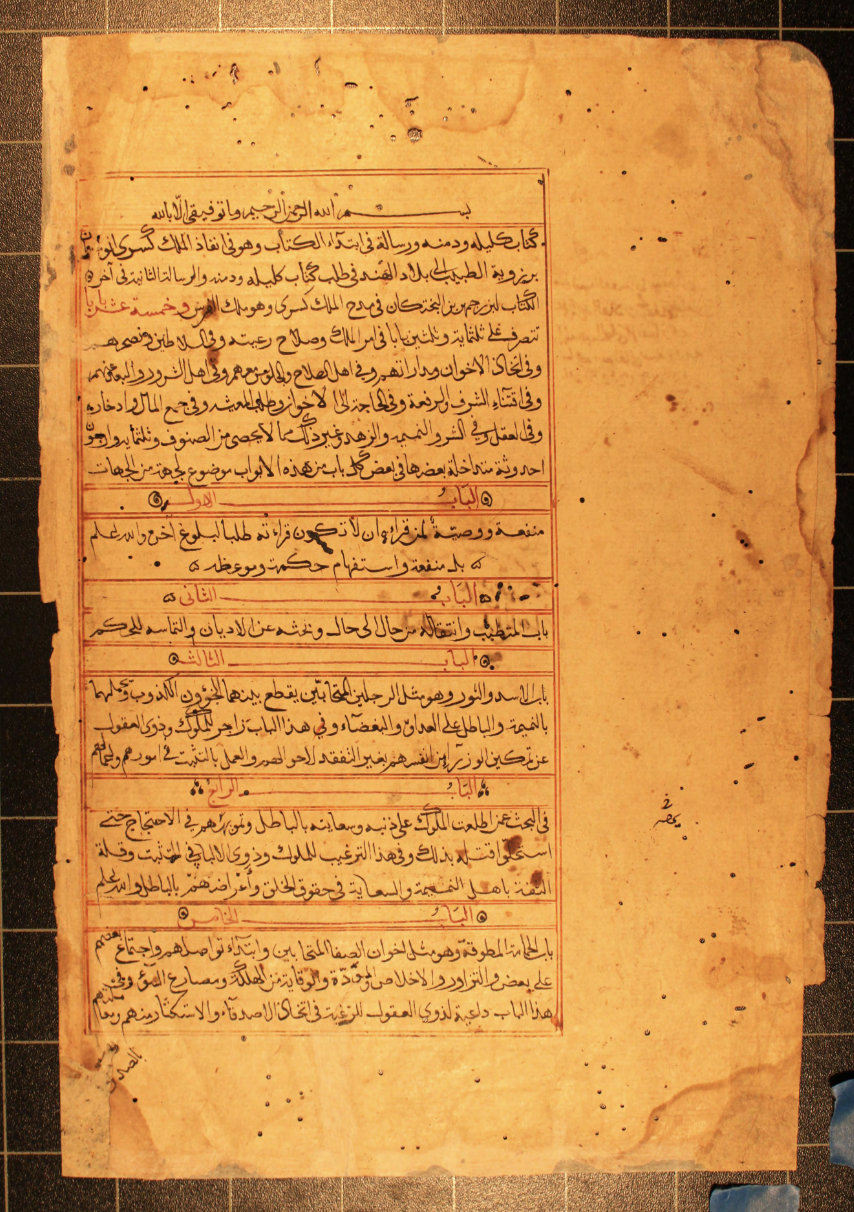 بسم الله الرحمن الرحيم وما توفيقي الا بالله
كتاب كليله ودمنه ورسالة في ابتداء الكتاب وهو في انفاذ الملك كسرى انوشروان
برزوية الطبيب الى بلاد الهند في طلب كتاب كليله ودمنه والرسالة الثانية في آخر
الكتاب لبزرجمهر بن البختكان في مدح الملك كسرى وهو ملك الفرس وخمسة عشر بابا
تتصرف على ثلثماية وثلثين بابا في امر الملك وصلاح رعيته وفي السلاطين
وفي اتخاذ الاخوان ومداراتهم وفي اهل الصلاح والجلوس معهم وفي اهل الشرور والبعد عنهم
وفي اقتناء الشرف والرفعة وفي الحاجة الى الاخوان وطلب المعيشه وفي جمع المال وادخاره
وفي العقل وفي الشر والنميمه والزهد وغير ذلك مما لا يحصى من الصنوف وثلثمايه
احدوثة متداخلة بعضها في بعض كل باب من هذه الابواب موضوع لجهة من الجهات
الباب الاول
منفعة ووصية لمن قراه ان لا تكون قراته طلبا لبلوغ آخره والله اعلم
بل منفعة واستفهام حكمة وموعظه
الباب الثاني
باب المتطبب وانتقاله من حال الى حال وبحثه عن الاديان والتماسه للحكم
الباب الثالث
باب الاسد والثور وهو مثل الرجلين المتحابين يقطع بينهما الخؤون الكذوب ويحملهما
بالنميمة والباطل على العداوة والبغضاء وفي هذا الباب زاجر للملوك وذوي العقول
عن تمكين الوزراء من انفسهم بغير التفقد لاحوالهم والعمل بالتثبت في امورهم
الباب الرابع
في البحث عن اطلعت الملوك على ذنبه وسعايته بالباطل وتورهم في الاحتجاج حتى
استحلوا قتله بذلك وفي هذا الترغيب للملوك وذوي الالباب في التثبت وقلة
الثقة باهل النميمة والسعاية في حقوق الخلق وأعراضهم بالباطل والله اعلم
الباب الخامس
باب الحمامة المطوقة وهو مثل اخوان الصفا المتحابين وابتداء تواصلهم واجتماع بعضهم
على بعض والتزاور والاخلاص والمودة والوقاية من الهلكة ومصارع السوء وفي
هذا الباب داعية لذوي العقول للرغبة في اتخاذ الاصدقاء والاستكثار منهم